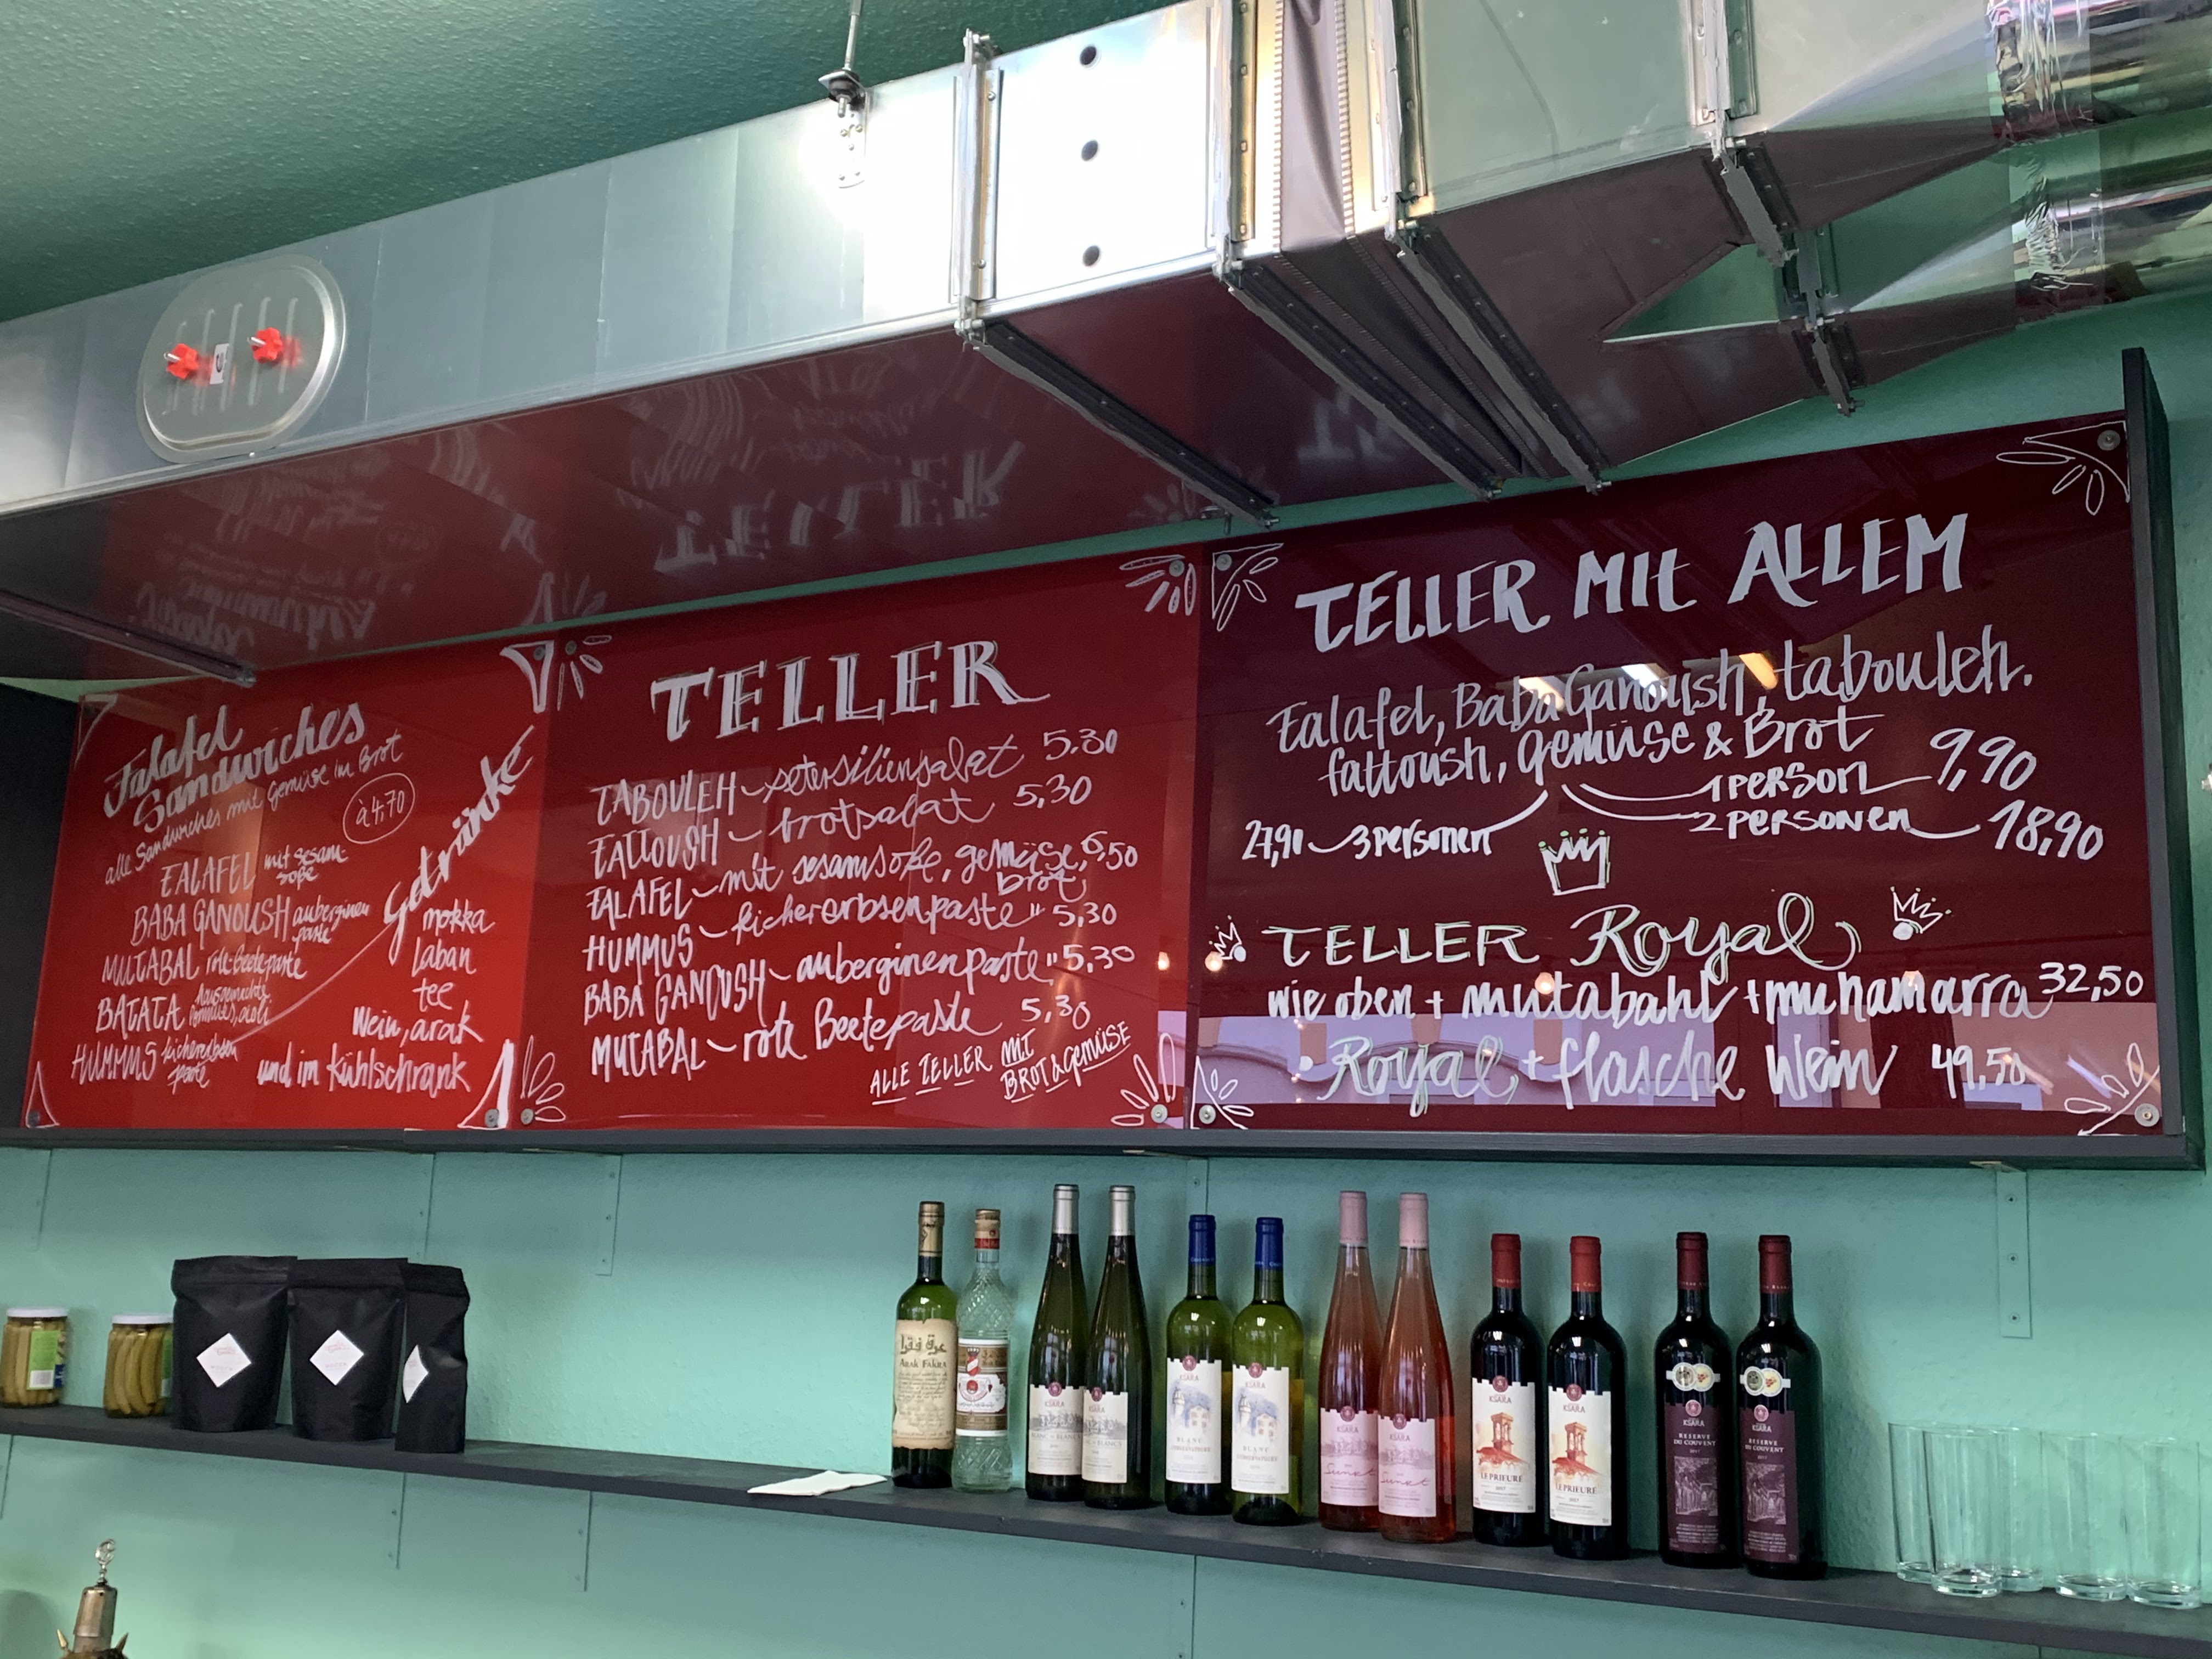 Falafel
Sandwiches
alle Sandwiches mit Gemüse im Brot
à 4,70
FALAFEL mit Sesam-
soße
BABA GANOUSH auberginen
paste
MUTABAL rote-Beetepaste
BATATA hausgemachte
pommes, aioli
HUMMUS kichererbsen
paste
Getränke
mokka
Laban
tee
Wein, arak
und im Kühlschrank
TELLER
TABOULEH - petersiliensalat 5.30
FATTOUSH - brotsalat 5,30
FALAFEL - mit sesamsoße, gemüse, 6,50
brot
HUMMUS - kichererbsenpaste " 5,30
BABA GANOUSH - auberginenpaste " 5,30
MUTABAL - rote Beetepaste 5,30
ALLE TELLER MIT
BROT & GEMÜSE
TELLER MIT ALLEM
Falafel, Baba Ganoush, tabouleh.
fattoush, Gemüse & Brot
1 PERSON 9,90
2 PERSONEN 18,90
27,90 3 PERSONEN
TELLER Royal
wie oben + mutabahl + muhamarra 32,50
Royal + flasche Wein 49,50
عرق فقرا
ARAK FAKRA
KSARA
BLANC DE BLANCS
KSARA
KSARA
BLANC
KSARA
BLANC
KSARA
Sunset
KSARA
Sunset
KSARA
LE PRIEURÉ
2017
KSARA
LE PRIEURÉ
2017
KSARA
RESERVE
DU COUVENT
2017
KSARA
RESERVE
DU COUVENT
2017